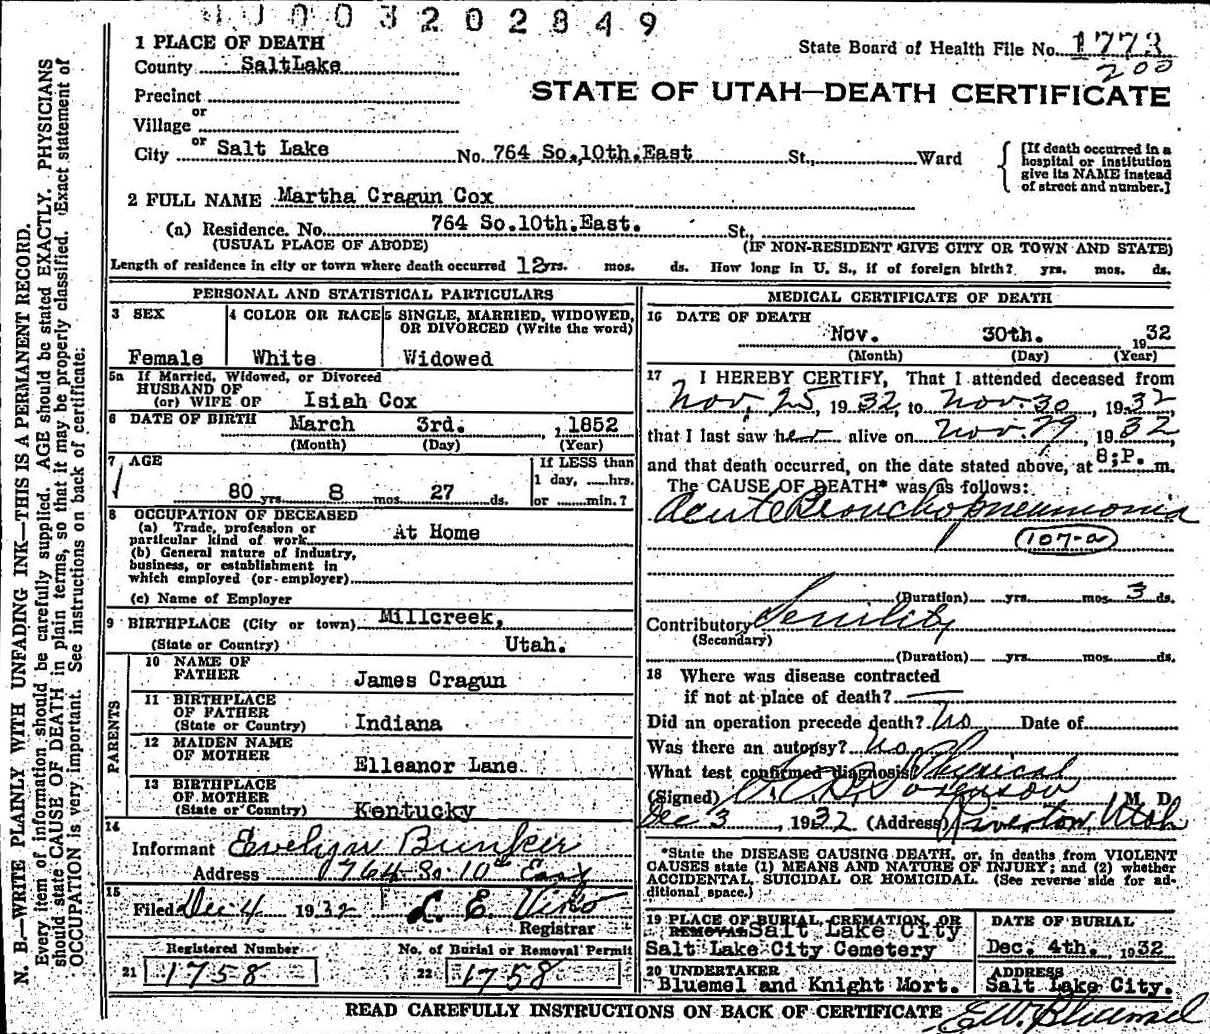 003202849
1 PLACE OF DEATH
State Board of Health File No. 1773
200
County SaltLake
Precinct
or
Village
STATE OF UTAH—DEATH CERTIFICATE
or
City Salt Lake No. 764 So.,10th.East St., Ward
[If death occurred in a
hospital or institution
give its NAME instead
of street and number.]
2 FULL NAME Martha Cragun Cox
(a) Residence. No. 764 So.10th.East. St.,
(USUAL PLACE OF ABODE) (IF NON-RESIDENT GIVE CITY OR TOWN AND STATE)
Length of residence in city or town where death occurred 12 yrs. mos. ds. How long in U. S., if of foreign birth? yrs. mos. ds.
PERSONAL AND STATISTICAL PARTICULARS
3 SEX 4 COLOR OR RACE 5 SINGLE, MARRIED, WIDOWED,
OR DIVORCED (Write the word)
Female White Widowed
5a If Married, Widowed, or Divorced
HUSBAND OF
(or) WIFE OF Isiah Cox
6 DATE OF BIRTH March 3rd. , 1852
(Month) (Day) (Year)
7 AGE If LESS than
1 day, hrs.
80 yrs. 8 mos. 27 ds. or min.?
8 OCCUPATION OF DECEASED
(a) Trade, profession or
particular kind of work At Home
(b) General nature of industry,
business, or establishment in
which employed (or employer)
(c) Name of Employer
9 BIRTHPLACE (City or town) Millcreek,
(State or Country) Utah.
PARENTS
10 NAME OF
FATHER James Cragun
11 BIRTHPLACE
OF FATHER
(State or Country) Indiana
12 MAIDEN NAME
OF MOTHER Elleanor Lane
13 BIRTHPLACE
OF MOTHER
(State or Country) Kentucky
14
Informant Evelyn Bunker
Address 764 So. 10th East
15
Filed Dec 4 1932 L. E. Viko
Registrar
Registered Number No. of Burial or Removal Permit
21 1758 22 1758
MEDICAL CERTIFICATE OF DEATH
16 DATE OF DEATH
Nov. 30th. 1932
(Month) (Day) (Year)
17 I HEREBY CERTIFY, That I attended deceased from
Nov. 25, 1932, to Nov. 30, 1932
that I last saw her alive on Nov. 29, 1932
and that death occurred, on the date stated above, at 8;P. m.
The CAUSE OF DEATH* was as follows:
Acute Bronchopneumonia
107-a
(Duration) yrs. mos. 3 ds.
Contributory Senility
(Secondary)
(Duration) yrs. mos. ds.
18 Where was disease contracted
if not at place of death?
Did an operation precede death? No Date of
Was there an autopsy? No
What test confirmed diagnosis? Physical
(Signed) Sorenson M. D.
Dec 3, 1932 (Address) Riverton, Utah
*State the DISEASE CAUSING DEATH, or, in deaths from VIOLENT
CAUSES state (1) MEANS AND NATURE OF INJURY; and (2) whether
ACCIDENTAL, SUICIDAL OR HOMICIDAL. (See reverse side for ad-
ditional space.)
19 PLACE OF BURIAL, CREMATION, OR
REMOVAL Salt Lake City
Salt Lake City Cemetery
DATE OF BURIAL
Dec. 4th. 1932
20 UNDERTAKER
Bluemel and Knight Mort.
ADDRESS
Salt Lake City.
READ CAREFULLY INSTRUCTIONS ON BACK OF CERTIFICATE
E.W. Bluemel
N. B.—WRITE PLAINLY WITH UNFADING INK—THIS IS A PERMANENT RECORD.
Every item of information should be carefully supplied. AGE should be stated EXACTLY. PHYSICIANS
should state CAUSE OF DEATH in plain terms, so that it may be properly classified. Exact statement of
OCCUPATION is very important. See instructions on back of certificate.